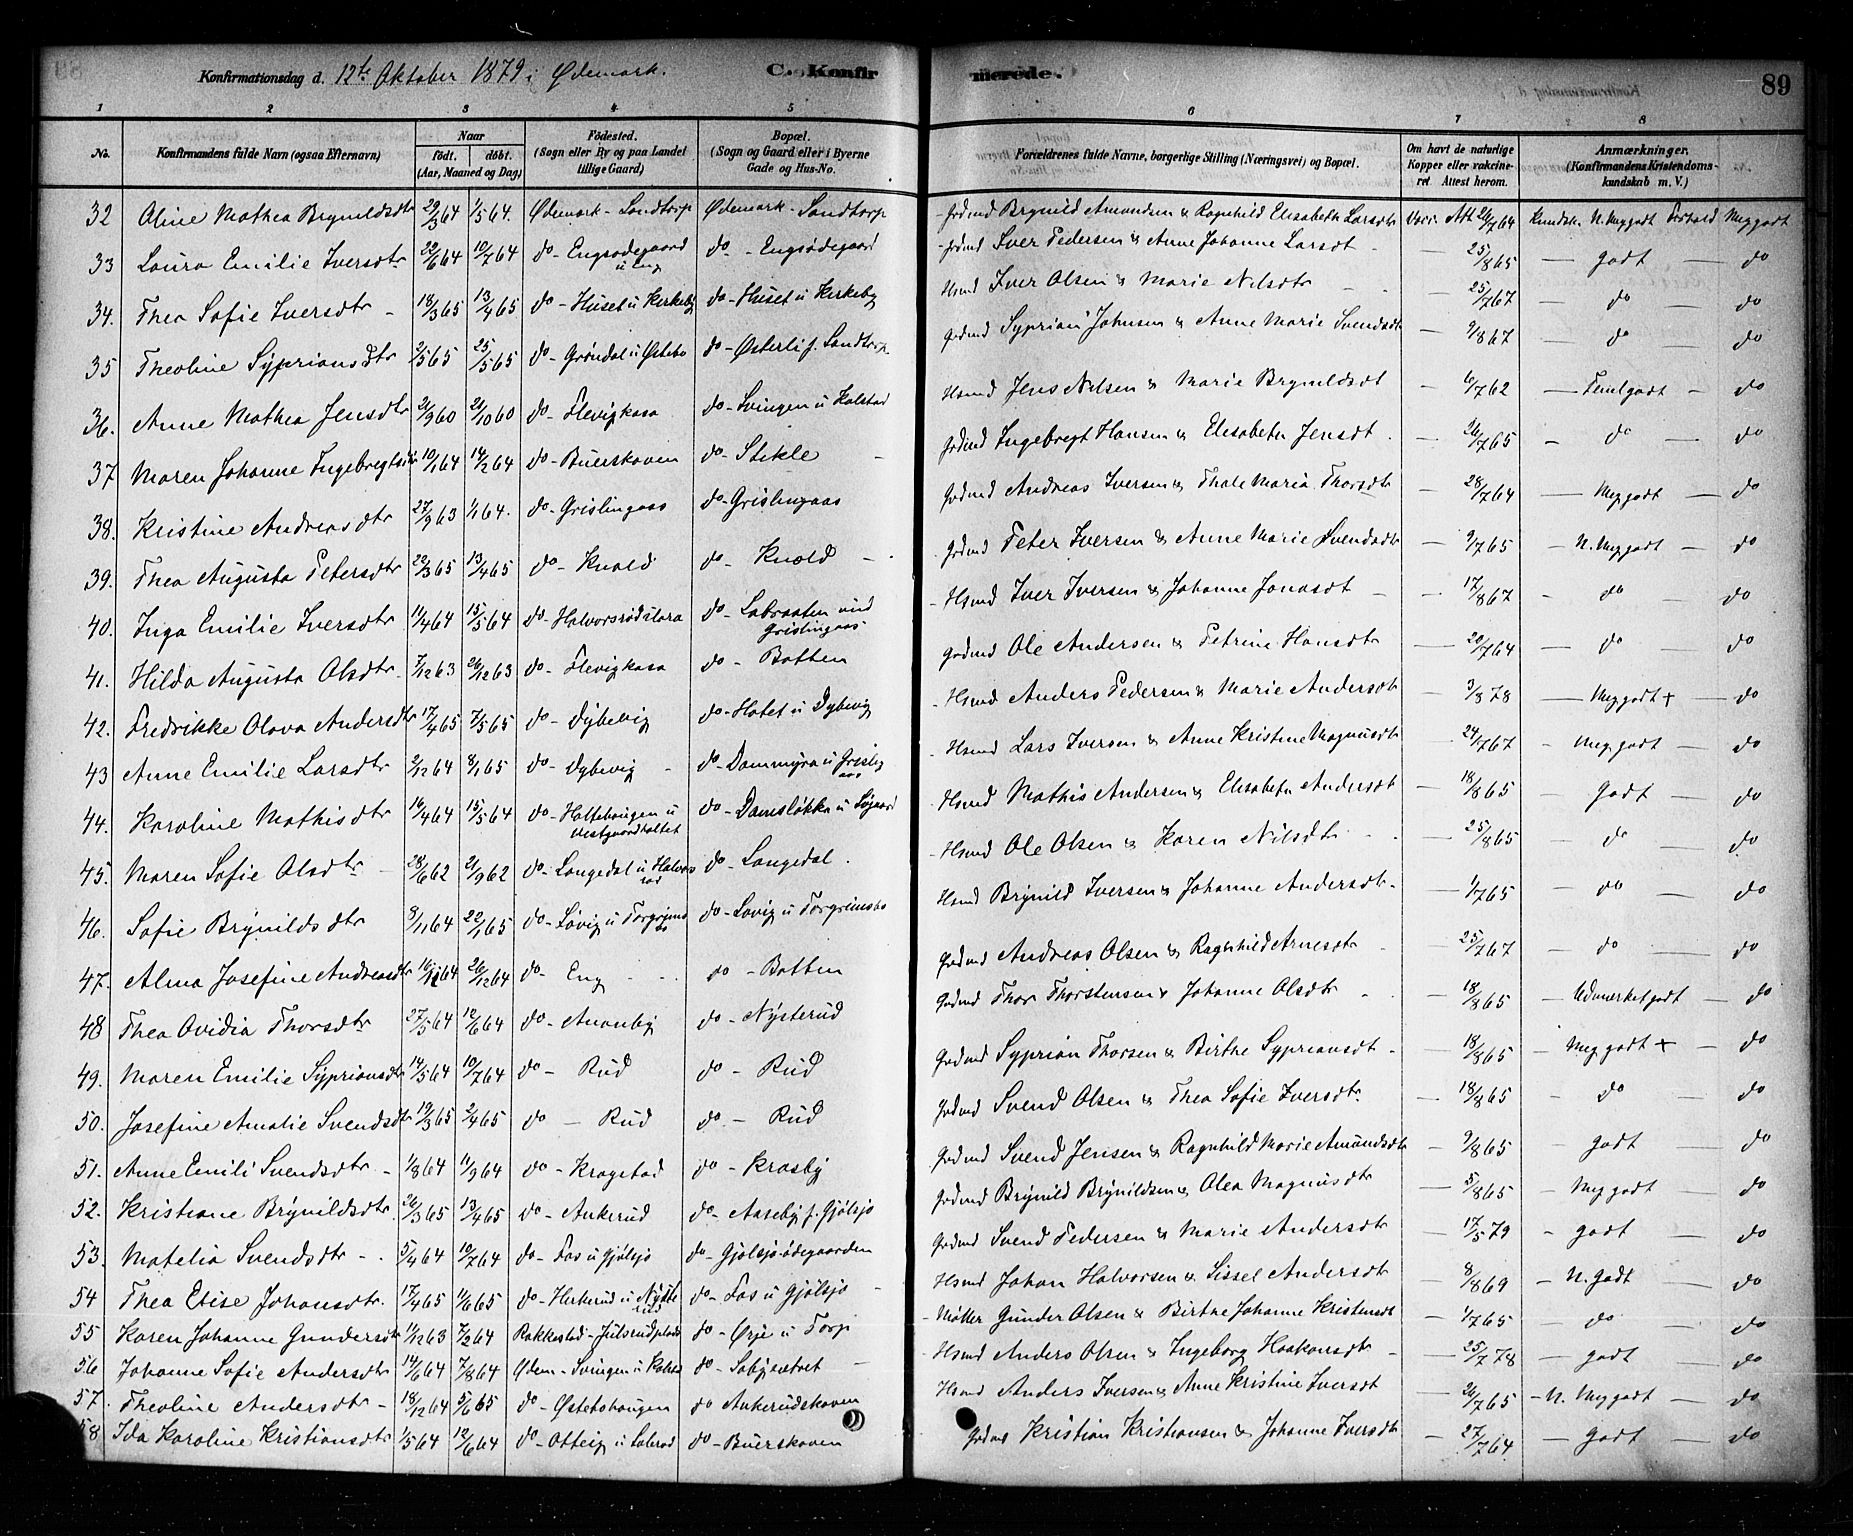 Konfirmationsdag d. 12te Oktober 1879 i Ødemark. C. Konfirmerede. 89
1 2 3 4 5 6 7 8
No. Konfirmandens fulde Navn (ogsaa Efternavn) Naar født. døbt. (Aar, Maaned og Dag) Fødested. (Sogn eller By og paa Landet tillige Gaard) Bopæl. (Sogn og Gaard eller i Byerne Gade og Hus-No. Forældrenes fulde Navne, borgerlige Stilling (Næringsvei) og Bopæl. Om havt de naturlige Kopper eller vakcineret Attest herom. Anmærkninger. (Konfirmandens Kristendomskundskab m. V.)
32 Aline Mathea Brynildsdtr 29/3 64 1/5 64. Ødemark - Sandtorp Ødemark - Sandtorp Gdmd Brynild Amundsen & Ragnhild Elisabeth Larsdtr Vacc. Att 26/7 64 Kundsk. N. Megodt Forhold Meggodt
33 Laura Emilie Iversdtr 22/6 64 10/7 64 do - Engsødegaard u Eng do - Engsødegaard Gdmd Iver Pedersen & Anne Johanne Larsdt — 25/8 65 — godt — do
34. Thea Sofie Iversdtr 18/3 65 13/4 65 do - Huset u Kirkeby do - Huset u Kirkeby Hsmd Iver Olsen & Marie Nilsdtr — 25/7 67 — do — do
35 Theoline Sypriansdtr 2/5 65 25/5 65 do - Grøndal u Østebø do - Østerli f. Sandtorp Gdmd Syprian Johnsen & Anne Marie Svendsdtr — 9/8 67 — do — do
36. Anne Mathea Jensdtr 2/9 60 21/10 60 do - Flevigkasa do - Svingen u Kolstad Hsmd Jens Nilsen & Marie Brynildsdt — 6/7 62 — Temelgodt — do
37 Maren Johanne Ingebregtsdtr 10/1 64 14/2 64 do - Buerskoven do - Stikle Gdmd Ingebregt Hansen & Elisabeth Jensdt — 26/7 65 — do — do
38. Kristine Andreasdtr 27/9 63 1/1 64. do - Grislingaas do - Grislingaas Gdmd Andreas Iversen & Thale Maria Thorsdtr — 28/7 64 — Meggodt — do
39. Thea Augusta Petersdtr 22/3 65 13/4 65 do - Knold do - Knold Gdmd Peter Iversen & Anne Marie Svendsdtr — 9/7 65 — N. Meggodt — do
40. Inga Emilie Iversdtr 11/4 64 15/5 64 do - Halvorsrødslora do - Labraaten und Grislingaas Hsmd Iver Iversen & Johanne Jonasdt — 17/8 67 — do — do
41. Hilda Augusta Olsdtr 7/12 63 26/12 63 do - Flevigkasa do - Botten Gdmd Ole Andersen & Petrine Hansdtr — 20/7 64 — do do
42. Fredrikke Olava Andersdtr 17/4 65 7/5 65 do - Dybevig do - Hotet u Dybevig Hsmd Anders Pedersen & Marie Andersdtr — 3/8 78 — Meggodt + do
43 Anne Emilie Larsdtr 2/12 64 8/1 65 do - Dybevig do - Dammyra u Grislingaas Hsmd Lars Iversen & Anne Kristine Magnusdtr — 24/7 67 — Meg. godt — do
44. Karoline Mathisdtr 14/4 64 15/5 64 do - Holtehaugen u Vestgaardholtet do - Damsløkka u Søgaard Hsmd Mathis Andersen & Elisabeth Andersdt — 18/8 65 — Godt — do
45. Maren Sofie Olsdtr 28/6 62 21/9 62 do - Langedal u Halvorsrød do - Langedal. Hsmd Ole Olsen & Karen Nilsdtr — 25/8 65 — do — do
46. Sofie Brynildsdtr 8/11 64 22/1 65 do - Løvig u Torgrimsbø do - Løvig u Torgrimsbø Hsmd Brynild Iversen & Johanne Andersdtr — 1/7 65 — do — do
47. Alma Josefine Andreasdtr 16/11 64 26/12 64 do - Eng do - Botten Gdmd Andreas Olsen & Ragnhild Arnesdtr — 25/7 67 — do — do
48 Thea Ovidia Thorsdtr 27/5 64 12/6 64 do - Anonby do - Nysterud Gdmd Thor Thorstensen & Johanne Olsdtr — 18/8 65 — Udmerketgodt — do
49. Maren Emilie Sypriansdtr 14/5 64 10/7 64 do - Rud do - Rud Gdmd Syprian Thorsen & Birthe Sypriansdt — 18/8 65 — Meggodt + — do
50. Josefine Amalie Svendsdtr 19/3 65 2/4 65 do - Rud do - Rud Gdmd Svend Olsen & Thea Sofie Iversdtr — 18/8 65 — do — do
51. Anne Emili Svendsdtr 1/8 64 11/9 64 do - Kragstad do - Krosby Gdmd Svend Jensen & Ragnhild Marie Amundsdtr — 9/8 65 — godt do
52. Kristiane Brynildsdtr 26/3 65 13/4 65 do - Ankerud do - Aaseby f. Gjølsjø Gdmd Brynild Brynildsen & Olea Magnusdtr — 5/8 65 — Meggodt — do
53. Matelia Svendsdtr 5/4 64 10/7 64 do - Fos u Gjølsjø do - Gjølsjøødegaarden Gdmd Svend Pedersen & Marie Andersdtr — 17/5 79 — godt — do
54 Thea Elise Johansdtr. 17/4 65 11/6 65 do - Herkerud u Nysterud do - Fos u Gjølsjø Hsmd Johan Halvorsen & Sissel Andersdtr — 8/8 69 — N. Godt — do
55 Karen Johanne Gundersdtr 11/12 63 7/2 64 Rakkestad - Julsrudplads do - Ørje u Torp Møller Gunder Olsen & Birthe Johanne Kristensdt — 1/7 65 — do — do
56 Johanne Sofie Andersdtr 14/6 64 7/8 64 Ødem - Svingen u Kolstad do - Sabysætret Hsmd Anders Olsen & Ingeborg Haakonsdtr — 25/7 78 — godt — do
57. Theoline Andersdtr 18/12 64 5/6 65 do - Østetohaugen do Ankerudskoven Hsmd Anders Iversen & Anne Kristine Iversdt — 26/7 65 — N. Meggodt — do
58. Ida Karoline Kristiansdtr 1/5 64 12/6 64 do - Otteig u Labraa do - Buerskoven Gdmd Kristian Kristiansen & Johanne Iversdtr — 27/7 64 — Godt — do